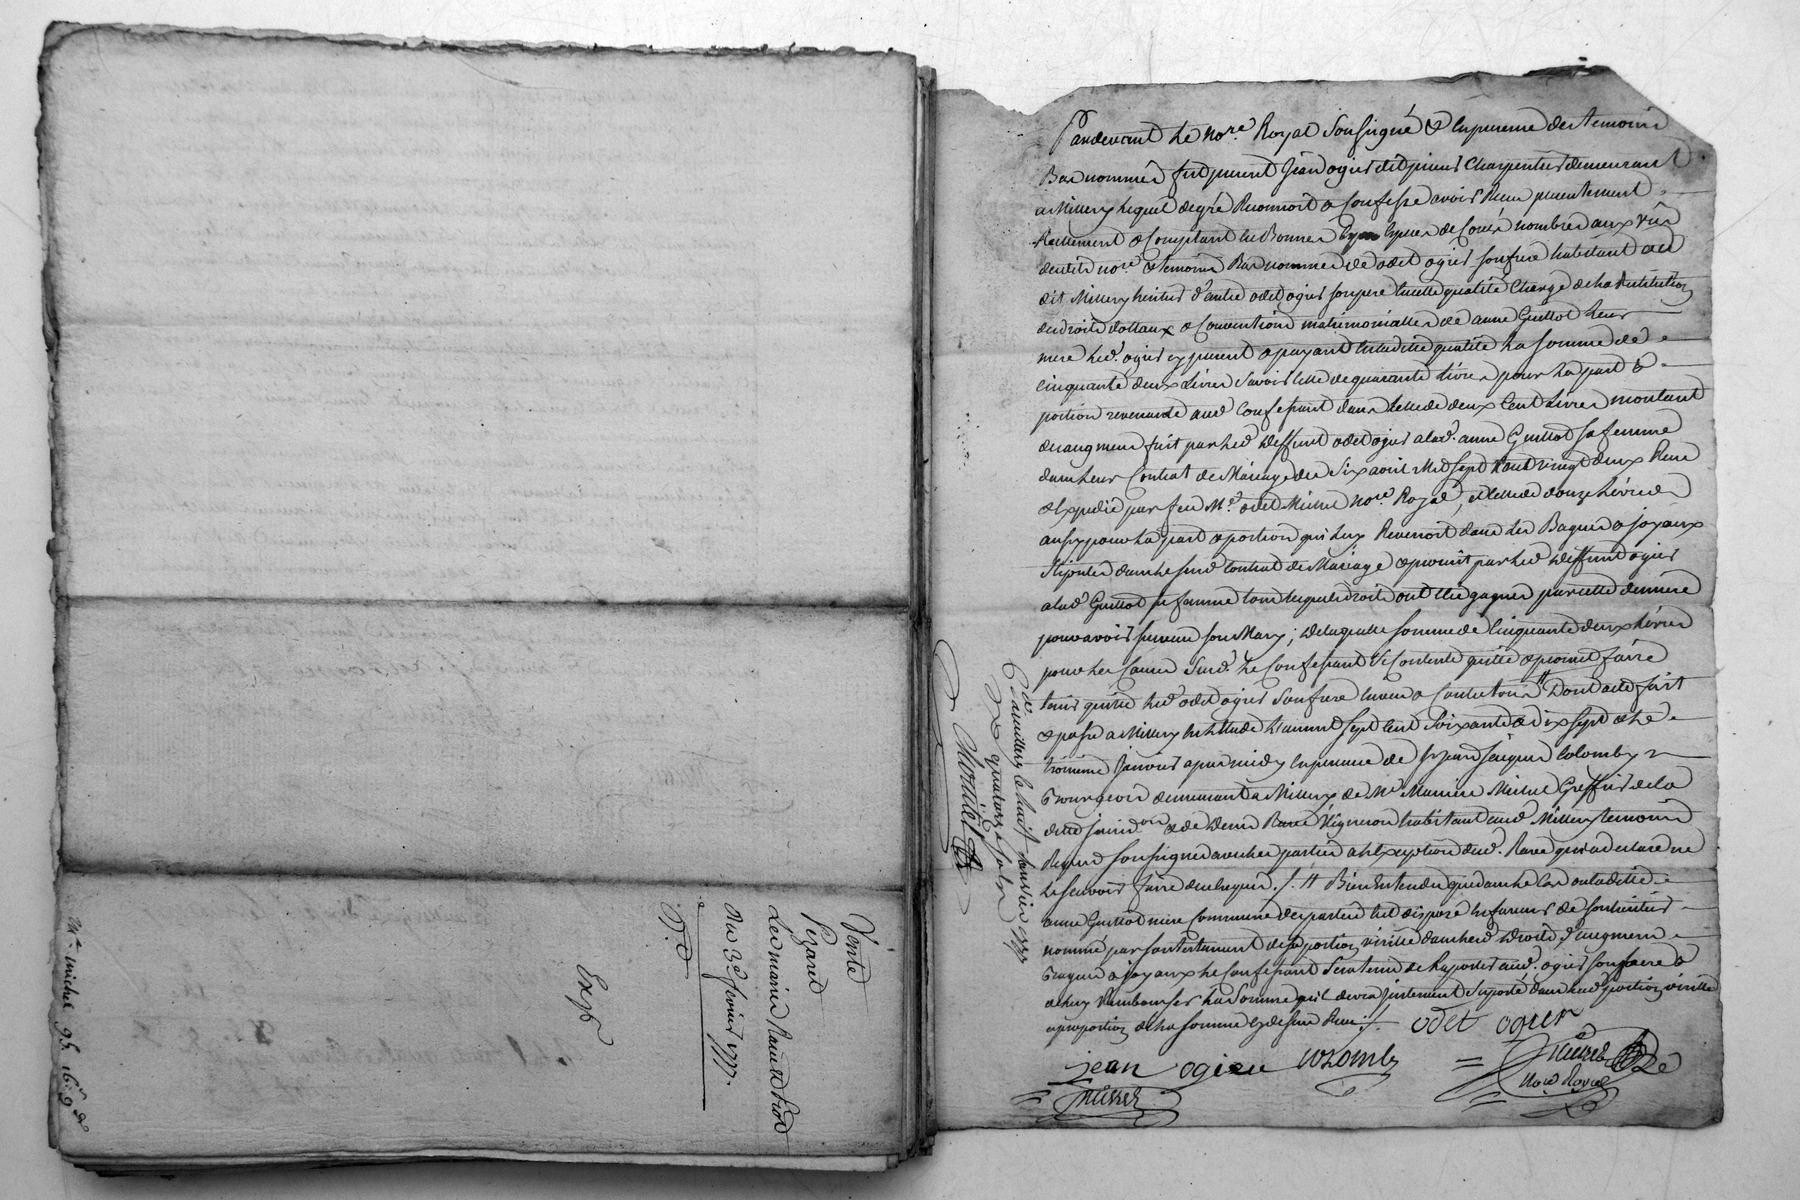 Vente
Pezand
Les mariés
Du 3e fevrier 1777.
Exp.
Me. michel 95 16 9
Pardevant Le Nore. Royal Soussigné & En presence des temoins
Bas nommés fut present Jean ogier dit Charpentier demeurant
a Millery lequel de gré Reconnoit & Confesse avoir Recu presentement
Reellement & Comptant En Bonnes Especes de Cours nombrées aux vües
desdits nore. & temoins Bas nommés de odet ogier son frere habitant au
dit Millery heritier d'autre odet ogier son pere & en cette qualité Chargé de la Restitution
des droits dottaux & Conventions matrimonialles de anne Guillot Leur
mere Led. ogier ici present & payant En ladite qualité La somme de
Cinquante deux Livres Savoir Celle de quarante Livres pour La part &
portion revenante aud. Confessant dans Celle de deux Cent Livres montant
de l'augment fait par Led. Deffunt odet ogier a lad. anne Guillot sa femme
dans leur Contrat de Mariage du Six avril Mil Sept Cent vingt deux Recu
& Expedié par feu Me. odet Michel Nore. Royal, et Celle de douze Livres
aussy pour La part & portion qui Luy Revenoit dans Les Bagues & joyaux
Stipulés dans Le susd. Contrat de Mariage & promis par Led. Deffunt ogier
a lad. Guillot sa femme tous lesquels droits ont été gagnés par cette derniere
pour avoir survecu son Mary; de laquelle somme de Cinquante deux Livres
pour Les Causes Susd. Le Confessant Se Contente quitte & promet faire
tenir quitte Led. odet ogier Son frere Envers & Contre tous // Dont acte fait
& passé a Millery En Etude L'an mil sept Cent Soixante & dix Sept & Le
troisieme Janvier apres midy En presence de sr. jean jacques Colomby
Bourgeois demeurant a Millery de Me. Michel Greffier de la
dite jurid.on & de Denis Vigneron habitant aud. Millery temoins
Requis soussignés avec Les parties a L'Exception dud. qui a declaré ne
Le sçavoir faire de ce Enquis ./. // Bien Entendu que dans Le Cas ou ladite
anne Guillot mere Commune des parties Eut disposé En faveur de Son heritier
nommé par son testament de sa portion virille dans lesd. Droits d'augment
Bagues & joyaux Le Confessant Sera tenu de Rapporter aud. ogier son frere &
de Luy Rembourser La Somme qu'il devra justement Supporter dans lad. portion virille
a proportion de La somme Cy dessus Recue ./. odet ogier
jean ogier Colomby Michel
Michel Nore Royal
Clé a millery le huit janvier 1777
Rû quatorze sols